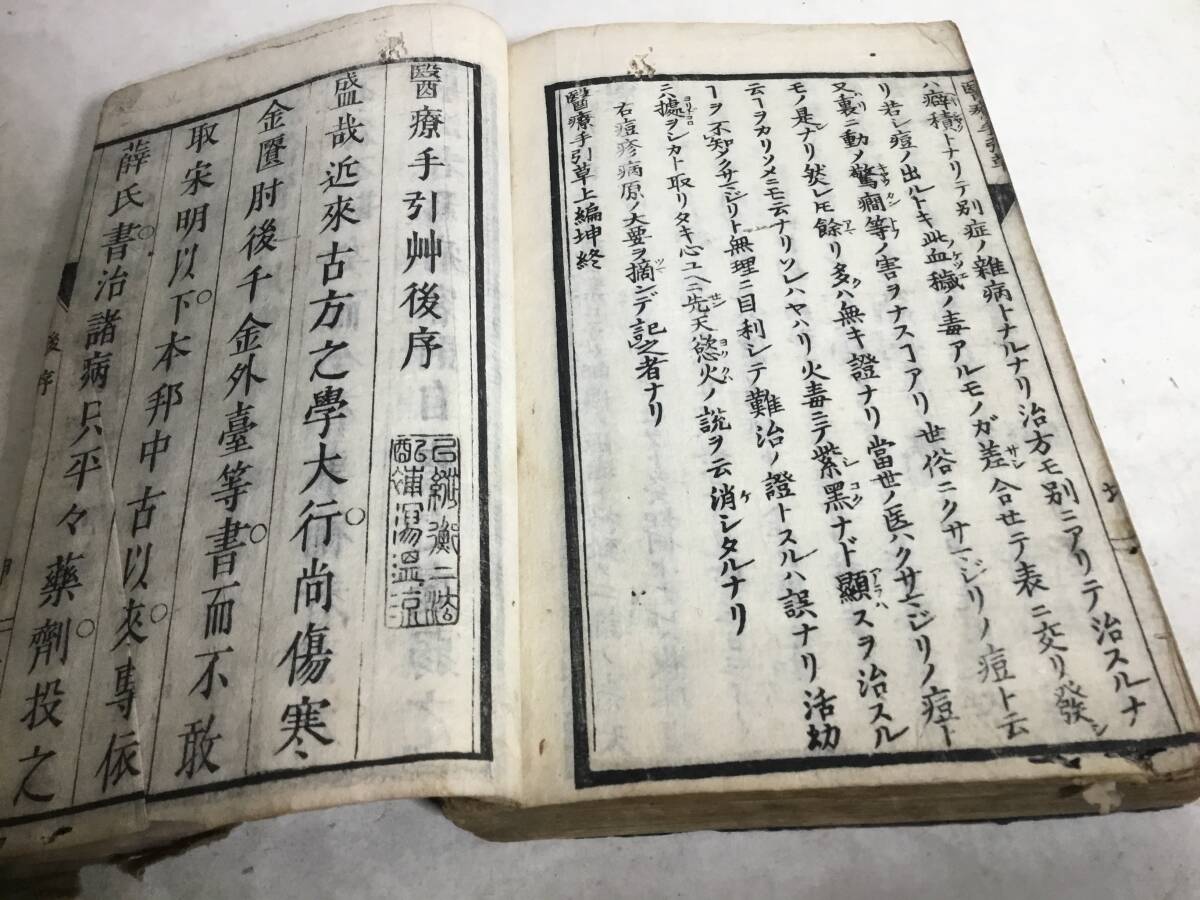 ハ癖積トナリテ別症ノ雜病トナルナリ治方モ別ニアリテ治スルナ
リ若シ痘ノ出ルトキ此血穢ノ毒アルモノガ差合セテ表ニ交リ發シ
又裏ニ動ノ驚癇等ノ害ヲナスコアリ世俗ニクサマジリノ痘ト云
モノ是ナリ然レ𪜈餘リ多ハ無キ證ナリ當世ノ医ハクサマジリノ痘ト
云ーヲカリソメニモ云ナリソレハヤハリ火毒ニテ紫黒ナド顯スヲ治スル
ーヲ不知メクサマジリト無理ニ目利シテ難治ノ證トスルハ誤ナリ活劫
ニハ據ヲシカト取リタキ心ユヘニ先天慾火ノ説ヲ云消シタルナリ
右痘疹病原ノ大要ヲ摘ンデ記之者ナリ
醫療手引草上編坤終
醫療手引艸後序
盛哉近來古方之學大行尚傷寒
金匱肘後千金外臺等書而不敢
取宋明以下本邦中古以來專依
薛氏書治諸病只平々藥劑投之
後序